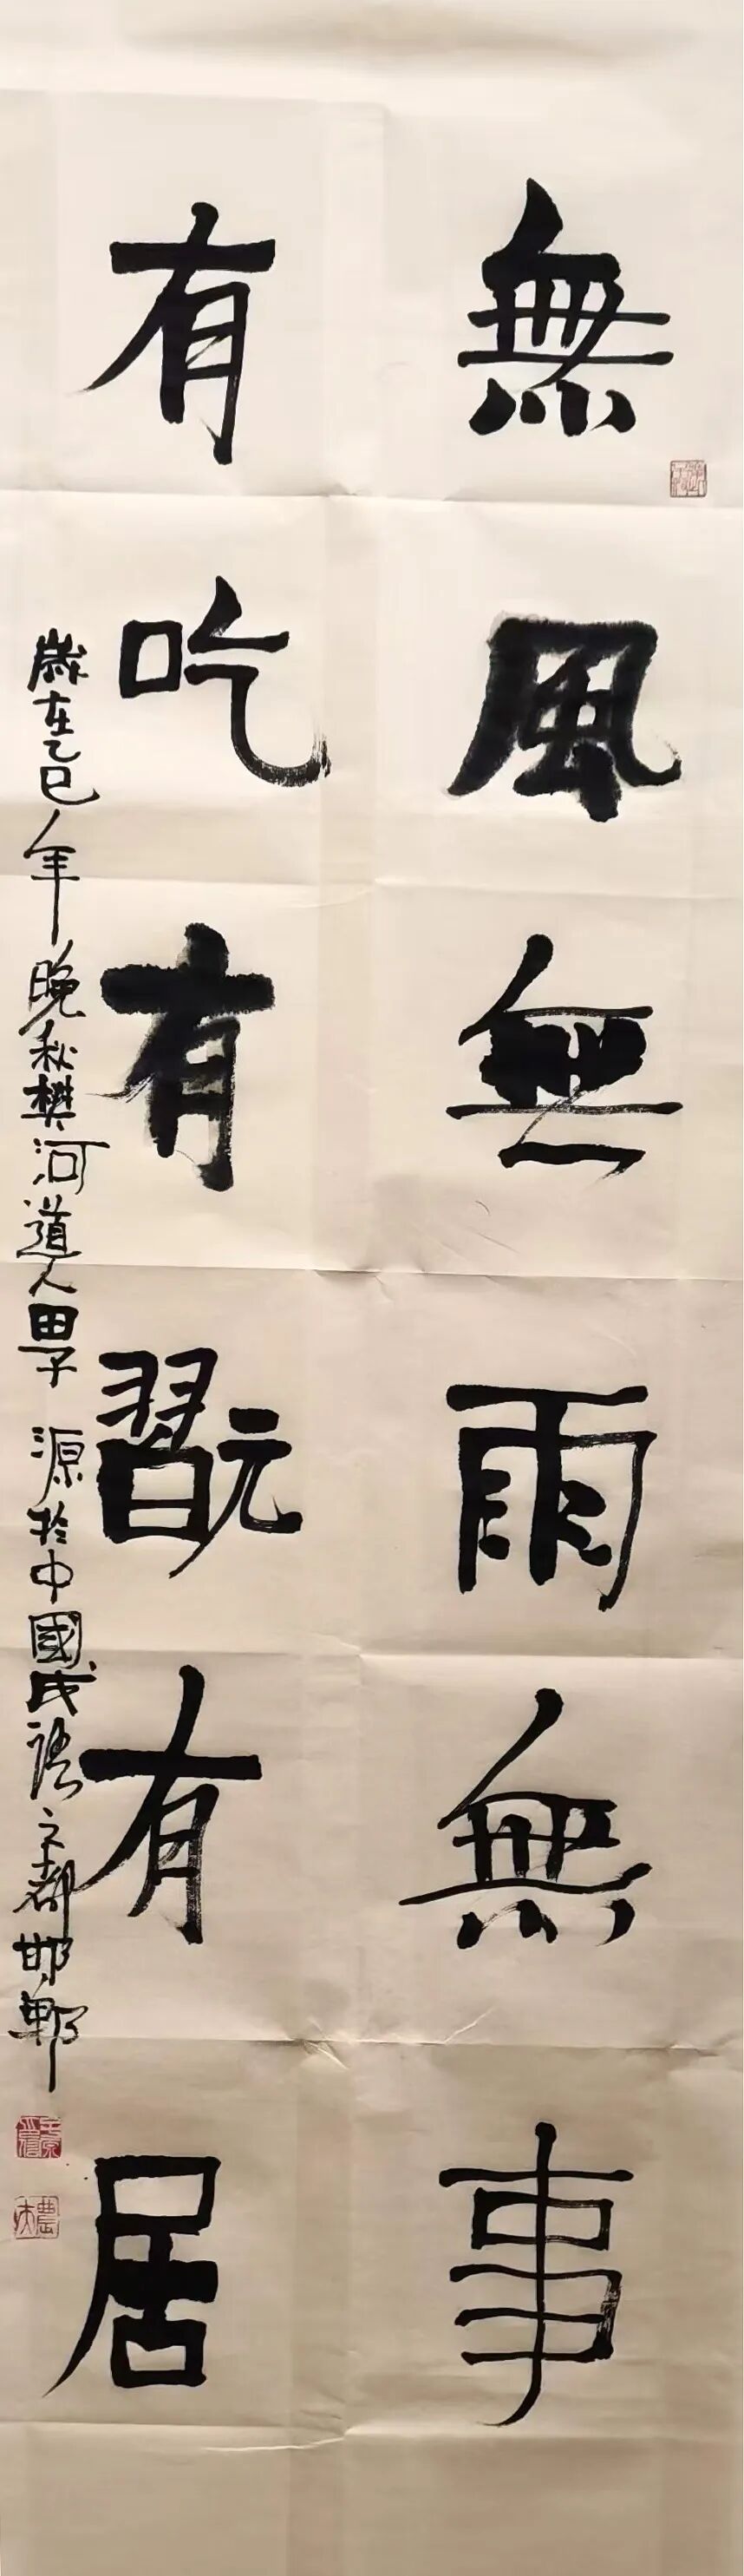 無風無雨無事
有吃有翫有居
歲在乙巳年晚秋樊河道人田子 源於中國成語之都邯鄲